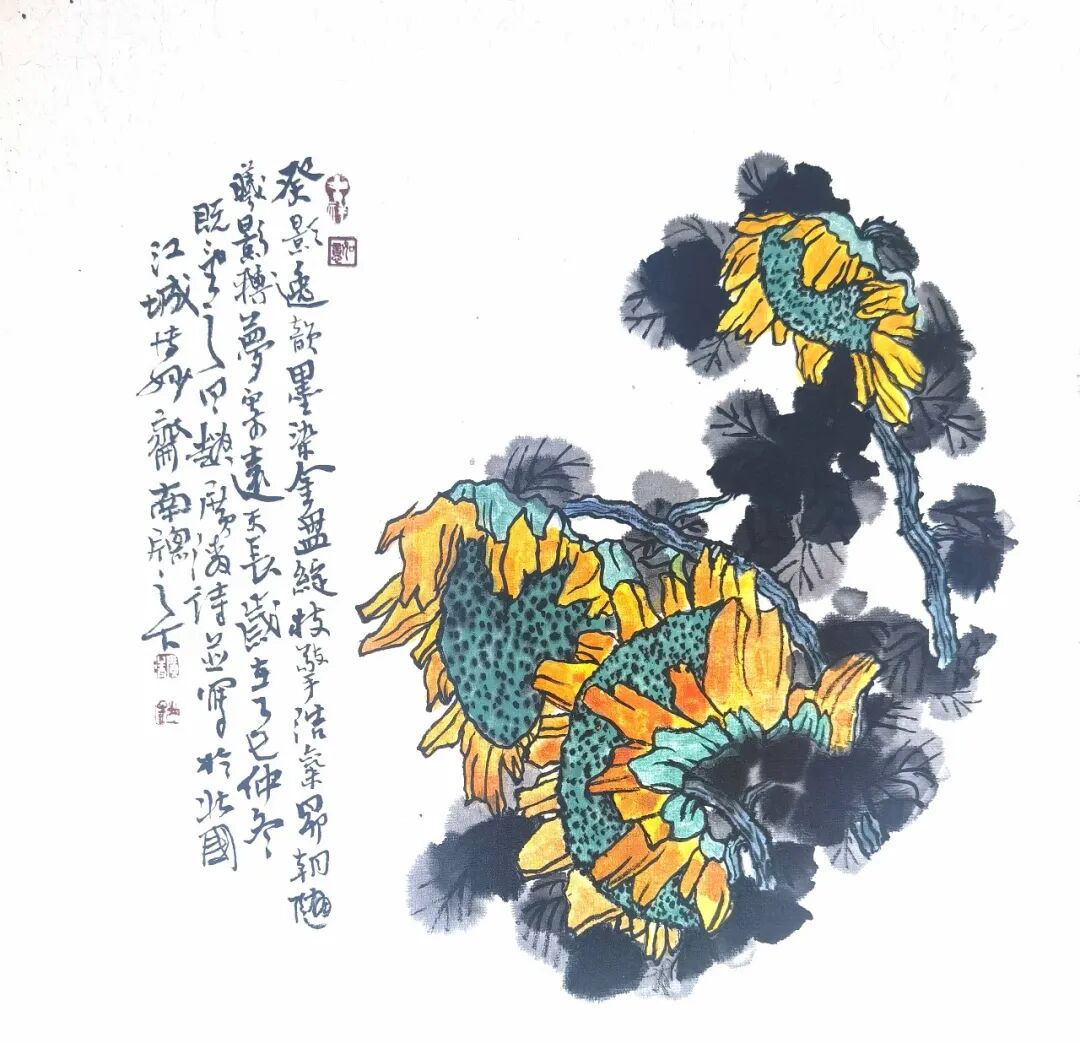 葵影逸韻墨染金盤綻枝擎浩氣昂朝隨
曦影轉夢寄遠天長歲在乙巳仲冬
既望之日趙廣詩並寫於北國
江城妙齋南牖之下